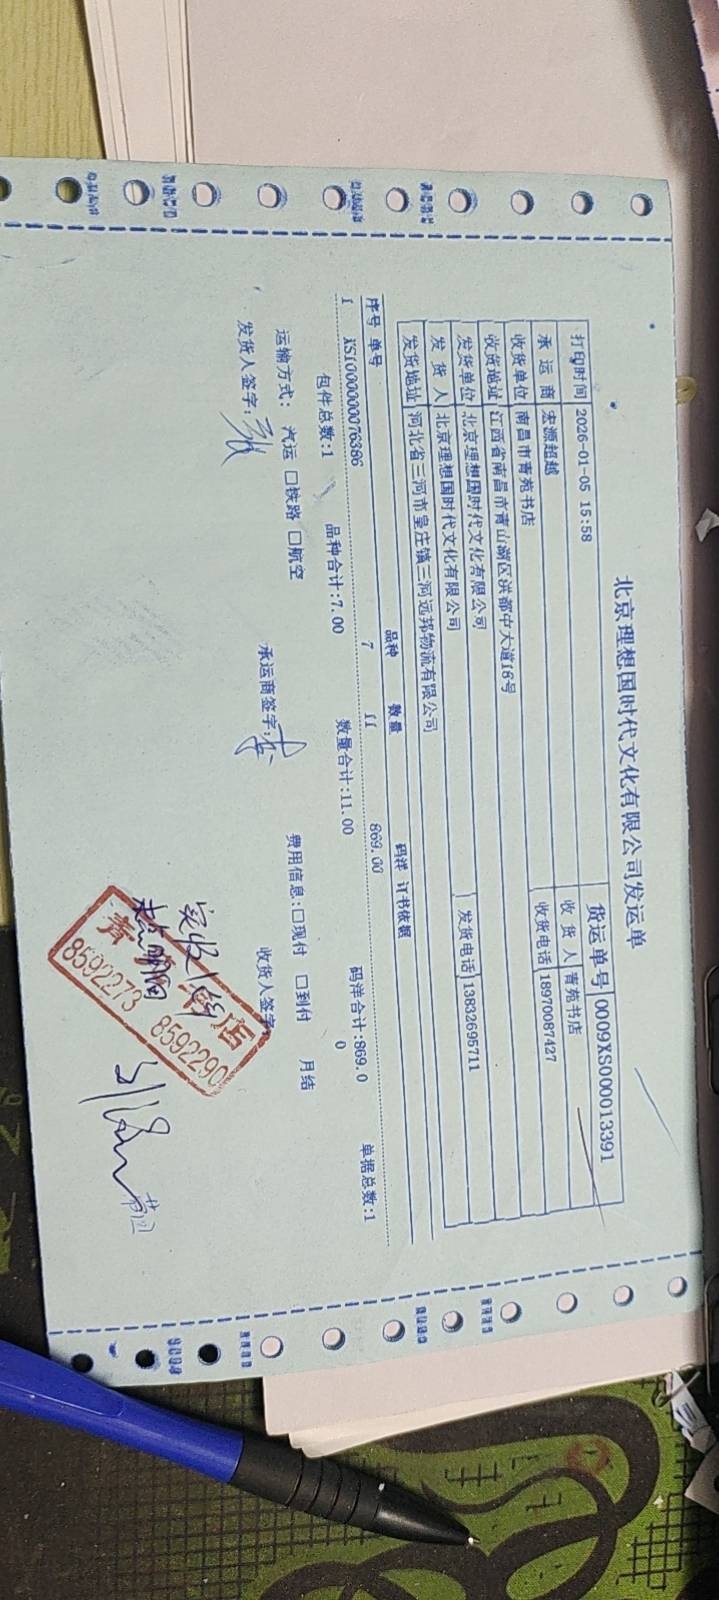 北京理想国时代文化有限公司发运单
货运单号 0009XS000013391
打印时间 2026-01-05 15:58 收货人 青苑书店
承运商 宏源超越 收货电话 18970087427
收货单位 南昌市青苑书店
收货地址 江西省南昌市青山湖区洪都中大道16号
发货单位 北京理想国时代文化有限公司 发货电话 13832695711
发货人 北京理想国时代文化有限公司
发货地址 河北省三河市皇庄镇三河远邦物流有限公司
序号 单号 品种 数量 码洋 订书依据
1 XS1000000076386 7 11 869.00
包件总数:1 品种合计:7.00 数量合计:11.00 码洋合计:869.00 单据总数:1
运输方式: 汽运 □铁路 □航空 费用信息:□现付 □到付 月结
发货人签字: 承运商签字: 收货人签字
实收1件
青苑书店
8592273 8592290